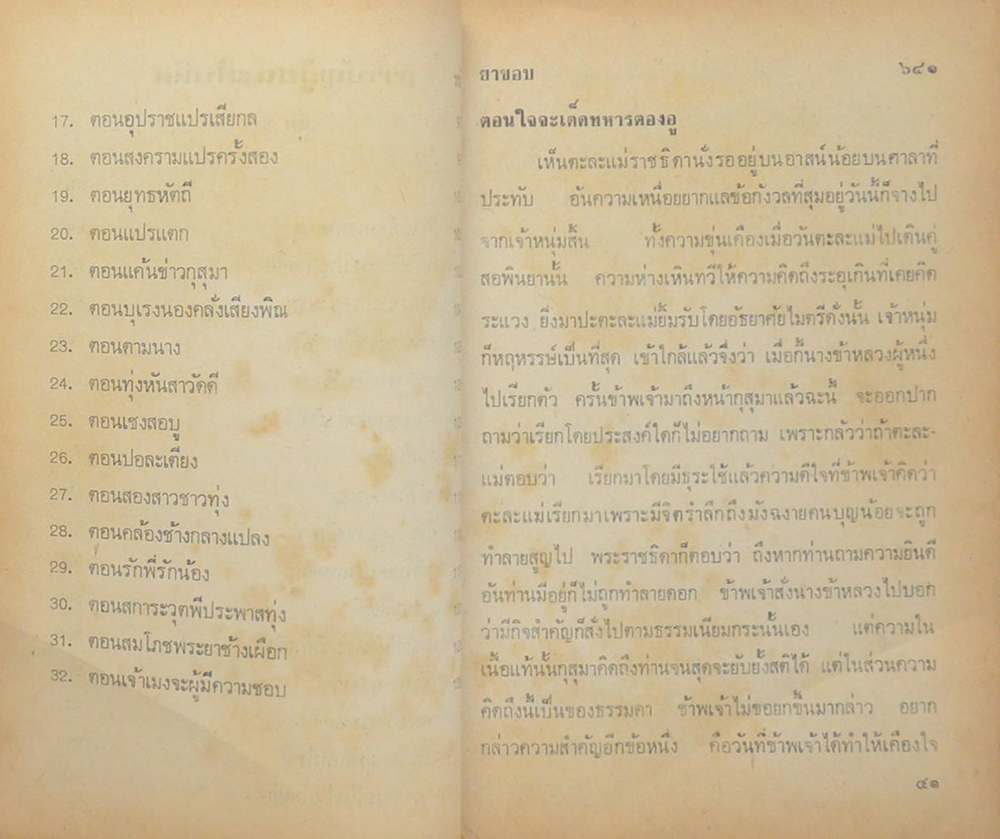 17. ตอนอุปราชแปรเสียกล
18. ตอนสงครามแปรครั้งสอง
19. ตอนยุทธหัตถี
20. ตอนแปรแตก
21. ตอนแค้นข่าวกุสุมา
22. ตอนบุเรงนองคลั่งเสียงพิณ
23. ตอนตามนาง
24. ตอนทุ่งหันสาวัดดี
25. ตอนเชงสอบู
26. ตอนปอละเตียง
27. ตอนสองสาวชาวทุ่ง
28. ตอนคล้องช้างกลางแปลง
29. ตอนรักพี่รักน้อง
30. ตอนสการะวุตพีประพาสทุ่ง
31. ตอนสมโภชพระยาช้างเผือก
32. ตอนเจ้าเมงจะผู้มีความชอบ
ยาขอบ ๖๔๑
ตอนใจจะเด็ดทหารตองอู
เห็นตะละแม่ราชธิดานั่งรออยู่บนอาสน์น้อยบนศาลาที่
ประทับ อันความเหนื่อยยากแลข้อกังวลที่สุมอยู่วันนี้ก็จางไป
จากเจ้าหนุ่มสิ้น ทั้งความขุ่นเคืองเมื่อวันตะละแม่ไปเดินคู่
สอพินยานั้น ความห่างเหินทวีให้ความคิดถึงระอุเกินที่เคยคิด
ระแวง ยิ่งมาปะตะละแม่ยิ้มรับโดยอัธยาศัยไมตรีดั่งนั้น เจ้าหนุ่ม
ก็หฤหรรษ์เป็นที่สุด เข้าใกล้แล้วจึงว่า เมื่อกี้นางข้าหลวงผู้หนึ่ง
ไปเรียกตัว ครั้นข้าพเจ้ามาถึงหน้ากุสุมาแล้วฉะนี้ จะออกปาก
ถามว่าเรียกโดยประสงค์ใดก็ไม่อยากถาม เพราะกลัวว่าถ้าตะละ-
แม่ตอบว่า เรียกมาโดยมีธุระใช้แล้วความดีใจที่ข้าพเจ้าคิดว่า
ตะละแม่เรียกมาเพราะมีจิตรำลึกถึงมังฉงายคนบุญน้อยจะถูก
ทำลายสูญไป พระราชธิดาก็ตอบว่า ถึงหากท่านถามความยินดี
อันท่านมีอยู่ก็ไม่ถูกทำลายดอก ข้าพเจ้าสั่งนางข้าหลวงไปบอก
ว่ามีกิจสำคัญก็สั่งไปตามธรรมเนียมกระนั้นเอง แต่ความใน
เนื้อแท้นั้นกุสุมาคิดถึงท่านจนสุดจะยับยั้งสติได้ แต่ในส่วนความ
คิดถึงนี้เป็นของธรรมดา ข้าพเจ้าไม่ขอยกขึ้นมากล่าว อยาก
กล่าวความสำคัญอีกข้อหนึ่ง คือวันที่ข้าพเจ้าได้ทำให้เคืองใจ
๔๑